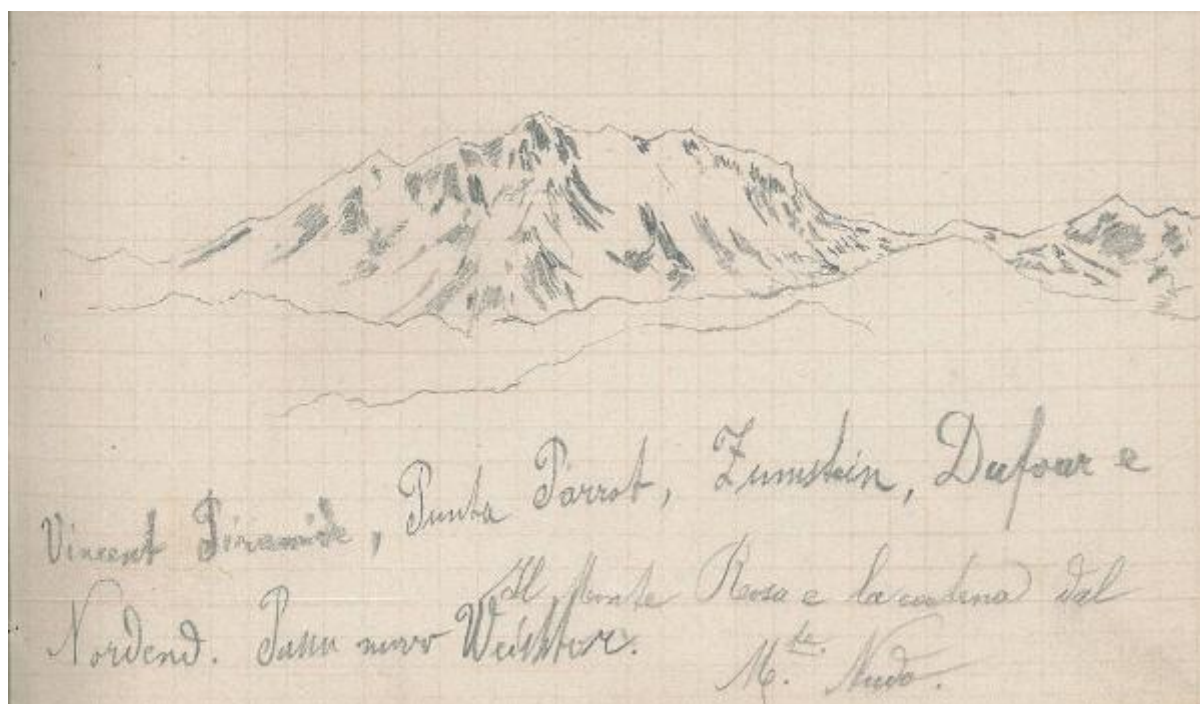 Vincent Piramide, Punta Parrot, Zumstein, Dufour e
Nordend. Passo nuovo
Il Monte Rosa e la catena dal
M.te Nudo.